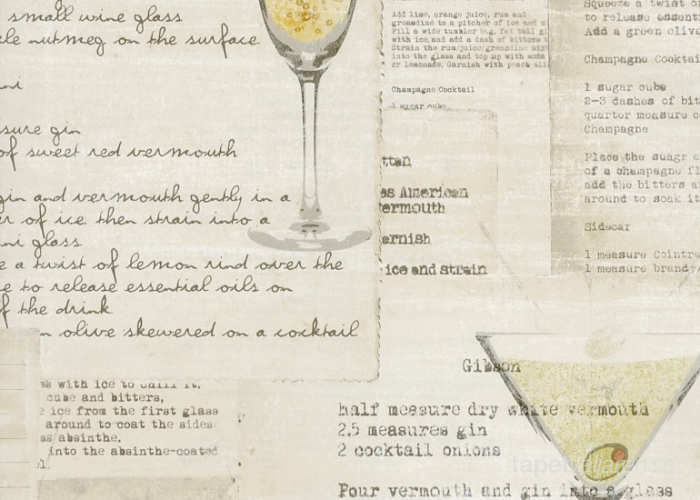 small wine glass
nutmeg on the surface
gin
of sweet red vermouth
gin and vermouth gently in a
of ice then strain into a
glass
a twist of lemon rind over the
to release essential oils on
the drink
olive skewered on a cocktail
Add lime, orange juice, rum and
grenadine to a pitcher of ice and
Fill a wide tumbler (e.g. fat tall
with ice, and add a dash of bitters
Strain the rum/juice/grenadine
into the glass and top up with soda
or lemonade. Garnish with
Champagne Cocktail
1 sugar cube
American
vermouth
ice and strain
Squeeze a twist of
to release
Add a green olive
Champagne Cocktai
1 sugar cube
2-3 dashes of bit
quarter measure o
Champagne
Place the suagr c
of a champagne fl
add the bitters a
around to soak it
Sidecar
1 measure Cointre
1 measure brandy
with ice to chill it.
cube and bitters,
ice from the first glass
around to coat the sides
absinthe.
into the absinthe-coated
Gibson
half measure dry white vermouth
2,5 measures gin
2 cocktail onions
Pour vermouth and gin into a glass